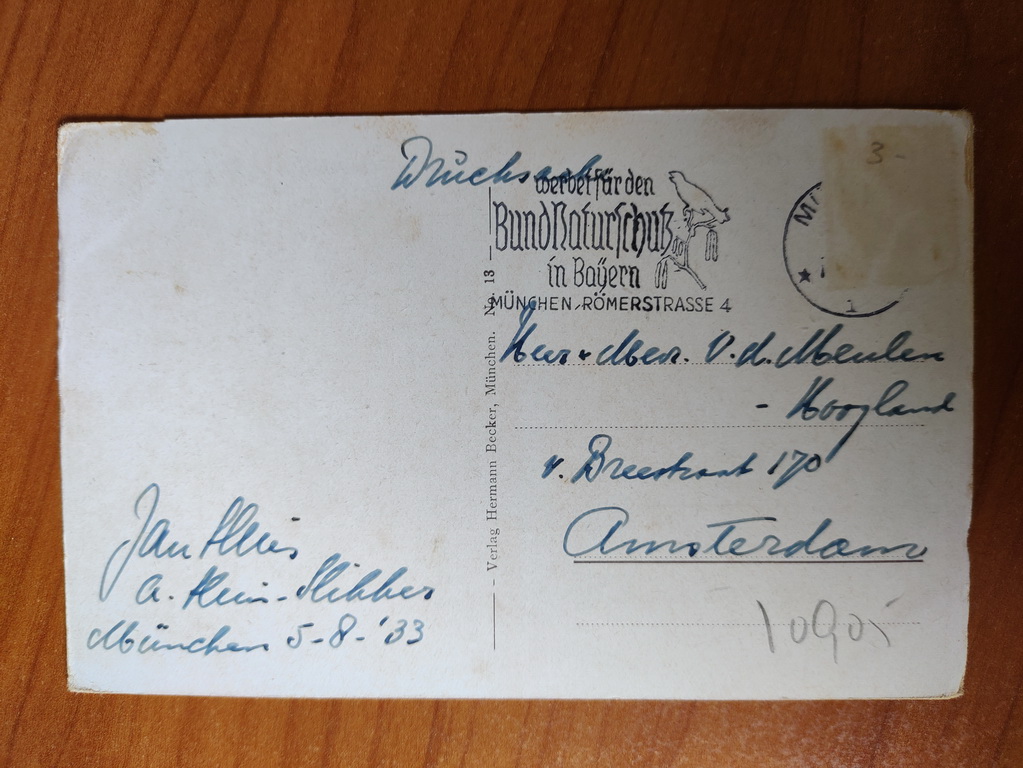 Drucksache
werbet für den
Bund Naturschutz
in Bayern
MÜNCHEN, RÖMERSTRASSE 4
3-
1
Heer & Mevr. V. d. Meulen
- Hoogland
v. Breestraat 170
Amsterdam
Verlag Hermann Becker, München. No. 13
Jan
München 5-8-'33